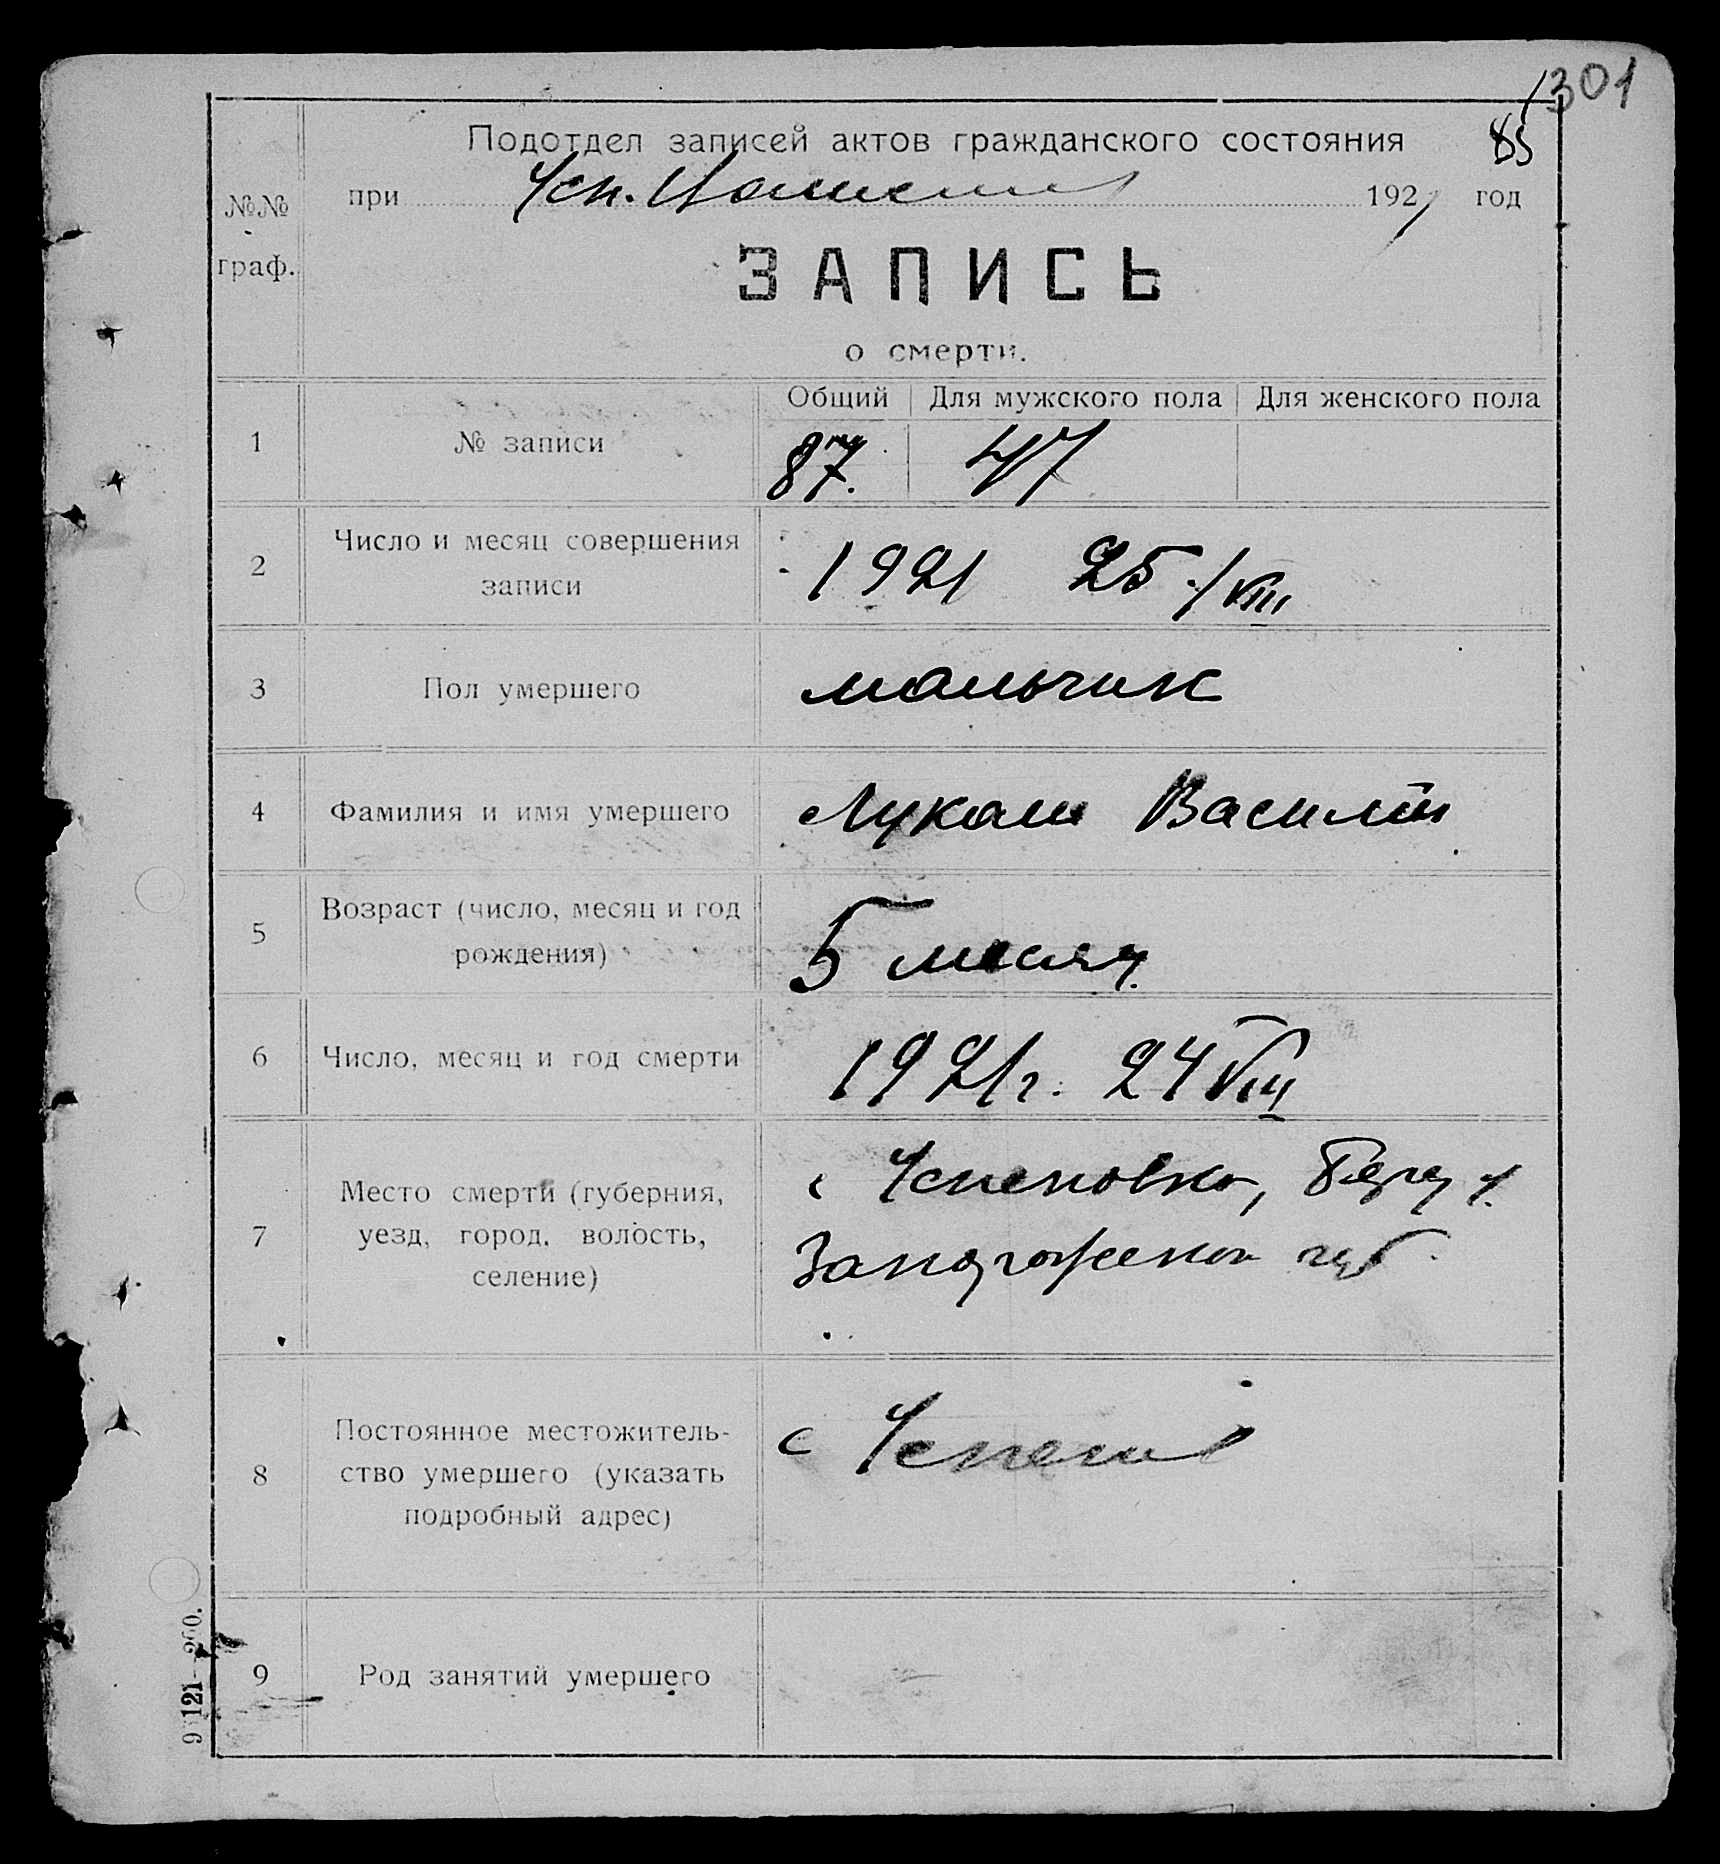 301
85
Подотдел записей актов гражданского состояния
при Усп. 1921 год
№№ граф.
ЗАПИСЬ
о смерти.
Общий Для мужского пола Для женского пола
1 № записи 87. 47
2 Число и месяц совершения записи 1921 25/VIII
3 Пол умершего мальчик
4 Фамилия и имя умершего Лукаш Василий
5 Возраст (число, месяц и год рождения) 5 месяц.
6 Число, месяц и год смерти 1921 г. 24 VIII
7 Место смерти (губерния, уезд, город, волость, селение) с Успеновка, у.
Запорожской губ.
8 Постоянное местожитель-
ство умершего (указать
подробный адрес) с
9 Род занятий умершего